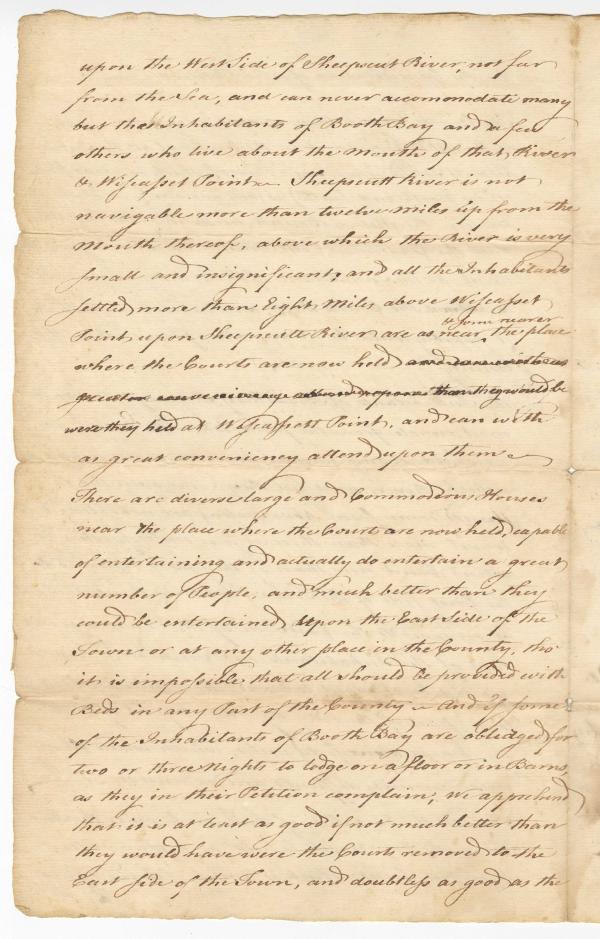 upon the West Side of Sheepscut River, not far
from the Sea, and can never accomodate many
but the Inhabitants of Booth Bay and a few
others who live about the Mouth of that River
& Wiscasset Point. Sheepscutt River is not
navigable more than twelve Miles up from the
Mouth thereof, above which the River is very
small and insignificant, and all the Inhabitants
settled more than Eight Miles above Wiscasset
& some nearer
Point upon Sheepscutt River are as near the place
where the Courts are now held and can with as
great conveniency attend upon than they would be
were they held at Wiscassett Point, and can with
as great conveniency attend upon them
There are diverse large and Commodious Houses
near the place where the Court are now held, capable
of entertaining and actually do entertain a great
number of People, and much better than they
could be entertained upon the East Side of the
Town or at any other place in the County, tho'
it is impossible that all should be provided with
Beds in any Part of the County. And if some
of the Inhabitants of Booth Bay are obliedged for
two or three Nights to lodge on a floor or in Barns,
as they in their Petition complain; we apprehend
that it is at least as good if not much better than
they would have were the Courts removed to the
East side of the Town, and doubtless as good as the